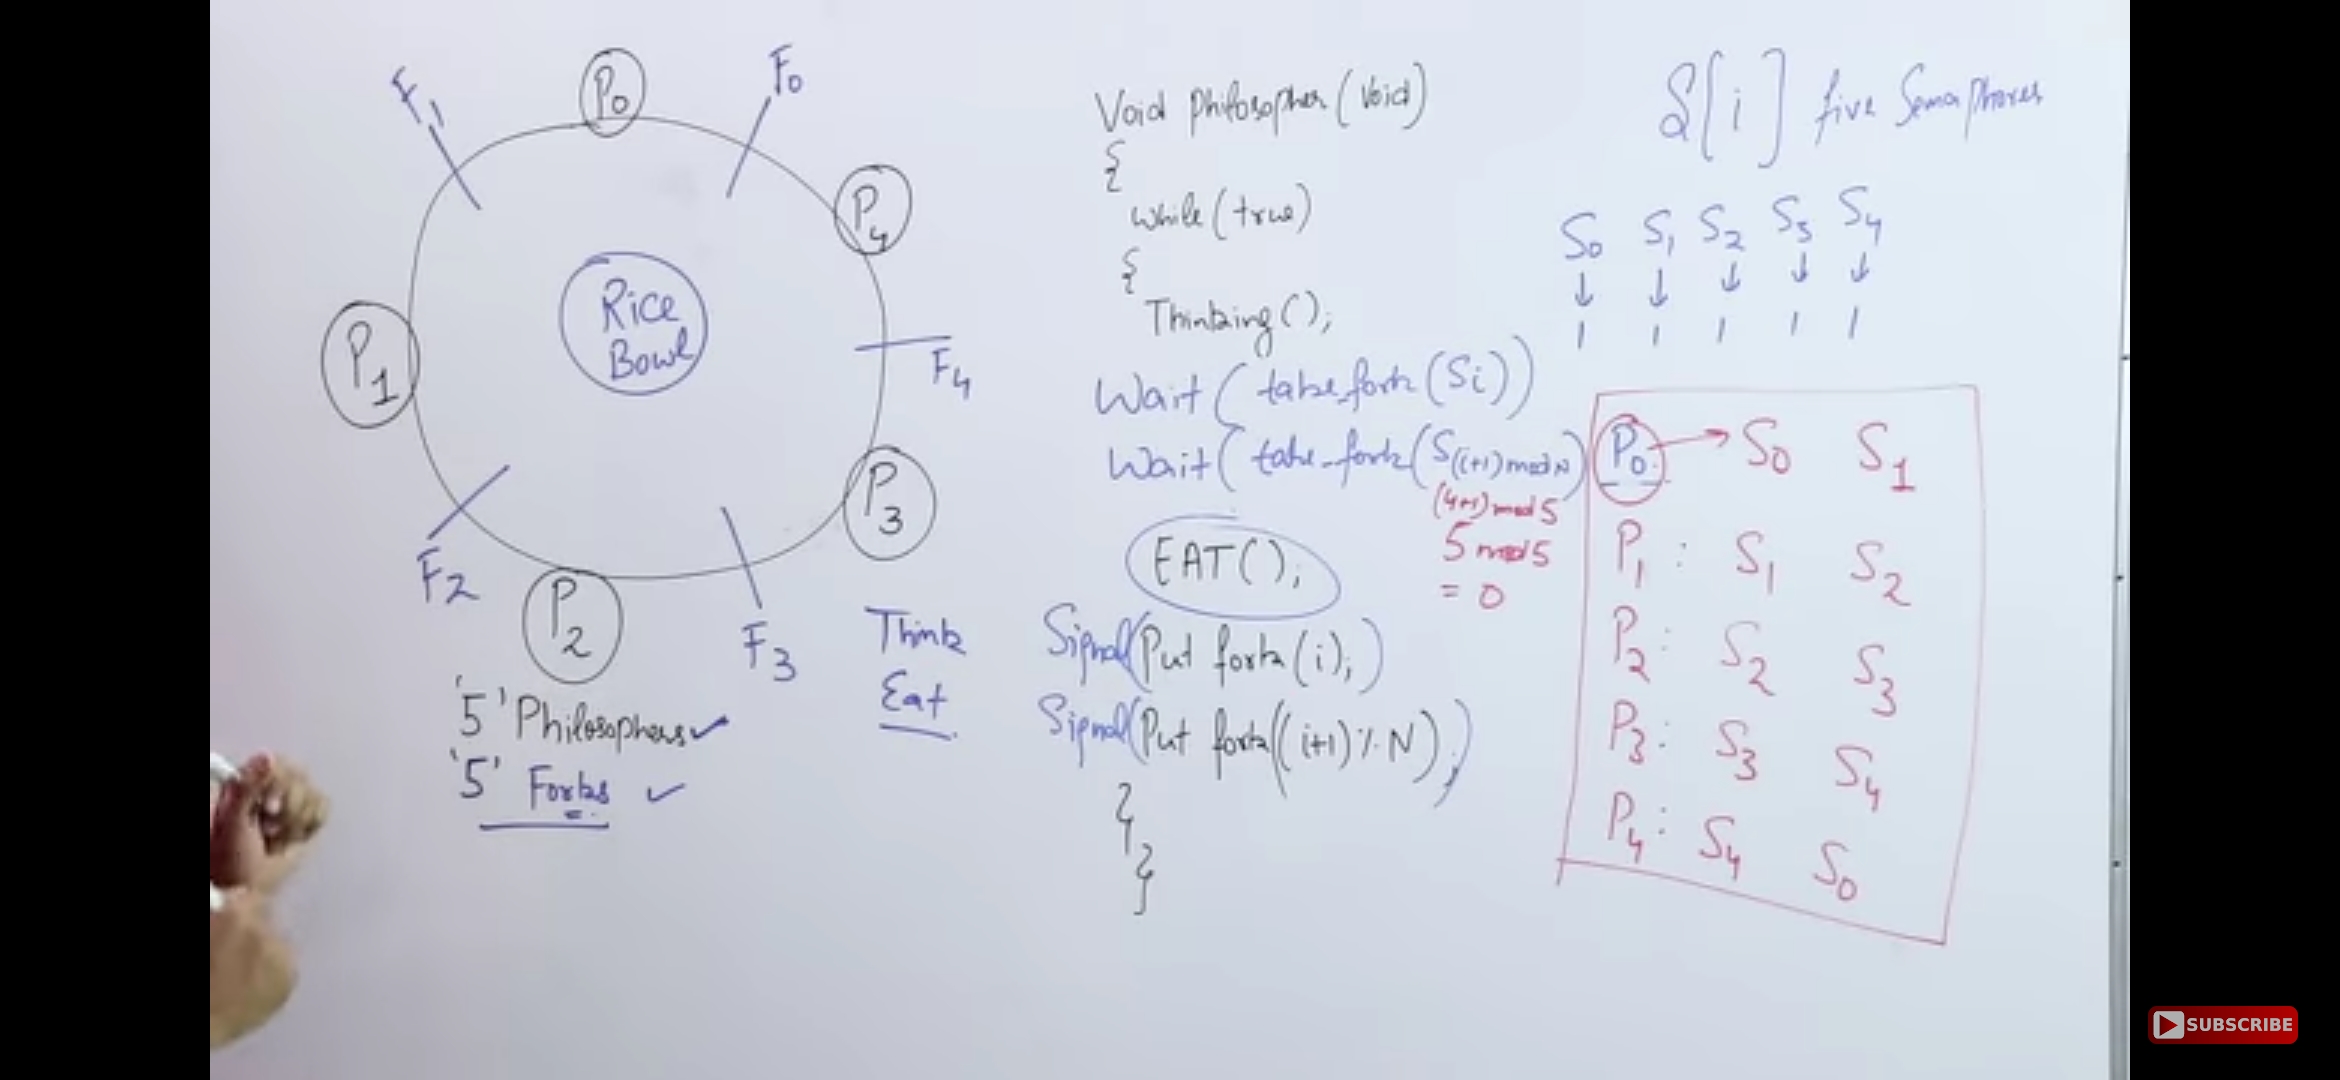 F1
P0
F0
P4
Rice
Bowl
P1
F4
P3
F2
P2
F3
'5' Philosophers
'5' Forks
Think
Eat
Void Philosopher (Void)
{
while (true)
{
Thinking ();
Wait ( take_fork (Si))
Wait ( take_fork (S(i+1) mod N)
(4+1) mod 5
5 mod 5
= 0
EAT();
Signal(Put fork (i);)
Signal(Put fork((i+1)%N);)
}
}
S[i] five Semaphores
S0 S1 S2 S3 S4
↓ ↓ ↓ ↓ ↓
1 1 1 1 1
P0 → S0 S1
P1 : S1 S2
P2 : S2 S3
P3 : S3 S4
P4 : S4 S0
SUBSCRIBE